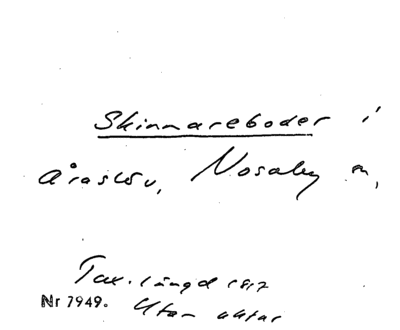 Skinnareboder i
Åraslöv, Nosaby sn,
Tax. längd 1817
Nr 7949. Utan aktar